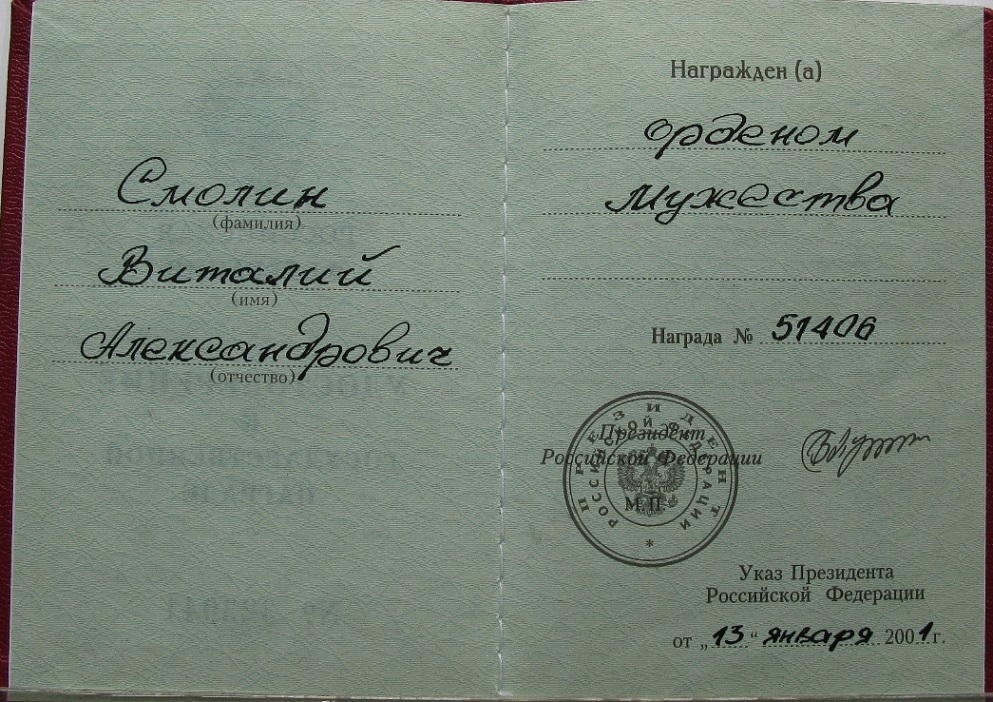 Смолин
(фамилия)
Виталий
(имя)
Александрович
(отчество)
Награжден (а)
орденом
Мужества
Награда № 51406
Президент
Российской Федерации
М.П.
ПРЕЗИДЕНТ
РОССИЙСКОЙ ФЕДЕРАЦИИ
*
Указ Президента
Российской Федерации
от „13“ января 2001 г.